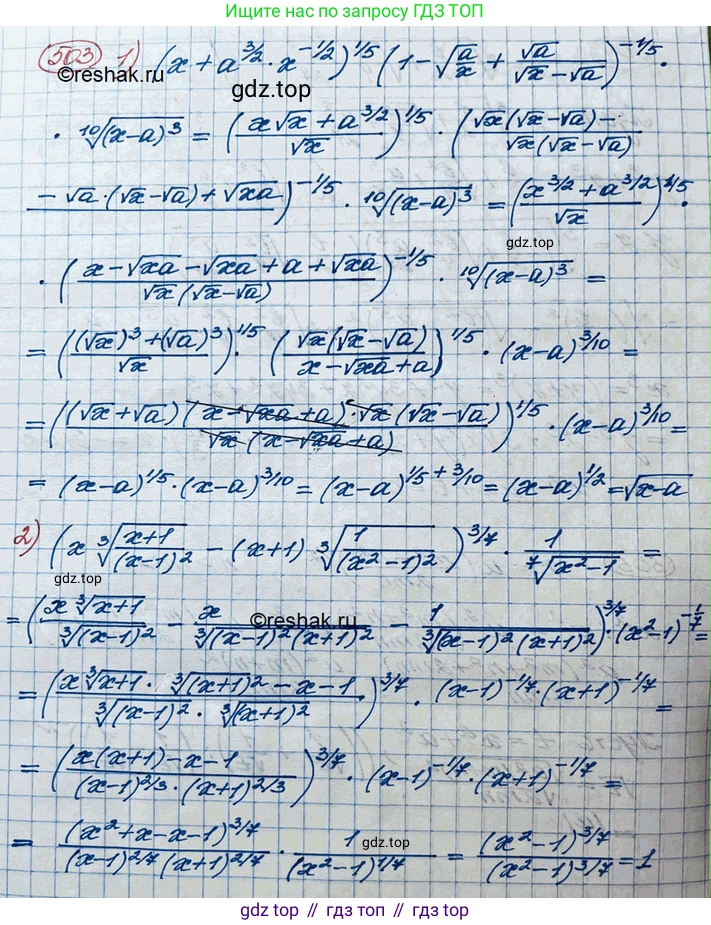 Ищите нас по запросу ГДЗ ТОП
503 1) (x + a^{3/2} · x^{-1/2})^{1/5} (1 - √(a/x) + √a/(√x - √a))^{-1/5} ·
©reshak.ru
гдз.top
· ¹⁰√((x-a)³) = ((x√x + a^{3/2})/√x)^{1/5} · ((√x(√x - √a) -
- √a · (√x - √a) + √(xa))/(√x(√x - √a)))^{-1/5} · ¹⁰√((x-a)³) = ((x^{3/2} + a^{3/2})/√x)^{1/5} ·
gdz.top
· ((x - √(xa) - √(xa) + a + √(xa))/(√x(√x - √a)))^{-1/5} · ¹⁰√((x-a)³) =
= (((√x)³ + (√a)³)/√x)^{1/5} · ((√x(√x - √a))/(x - √(xa) + a))^{1/5} · (x-a)^{3/10} =
= (((√x + √a)(x - √(xa) + a) · √x(√x - √a))/(√x(x - √(xa) + a)))^{1/5} · (x-a)^{3/10} =
= (x-a)^{1/5} · (x-a)^{3/10} = (x-a)^{1/5 + 3/10} = (x-a)^{1/2} = √(x-a)
2) (x ∛((x+1)/(x-1)²) - (x+1) ∛(1/(x²-1)²))^{3/7} · 1/⁷√(x²-1) =
gdz.top
= ((x∛(x+1))/∛((x-1)²) - x/∛((x-1)²(x+1)²) - 1/∛((x-1)²(x+1)²))^{3/7} · (x²-1)^{-1/7} =
©reshak.ru
= ((x∛(x+1) · ∛((x+1)²) - x - 1)/(∛((x-1)²) · ∛((x+1)²)))^{3/7} · (x-1)^{-1/7} · (x+1)^{-1/7} =
= ((x(x+1) - x - 1)/((x-1)^{2/3} · (x+1)^{2/3}))^{3/7} · (x-1)^{-1/7} · (x+1)^{-1/7} =
= (x² + x - x - 1)^{3/7}/((x-1)^{2/7}(x+1)^{2/7}) · 1/(x²-1)^{1/7} = (x²-1)^{3/7}/(x²-1)^{3/7} = 1
gdz.top
gdz.top // гдз.топ // гдз.top